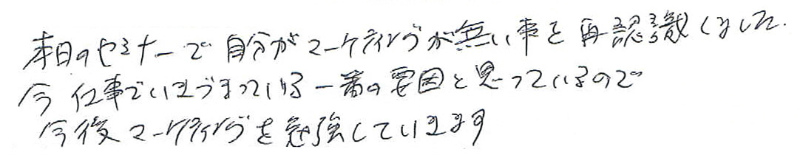 本日のセミナーで自分がマーケティングが無い事を再認識しました.
今仕事でいきづまっている一番の要因と思っているので
今後マーケティングを勉強していきます